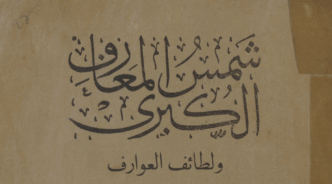 شَمْسُ المَعَارِفِ
الكُبْرَى
ولطائف العوارف